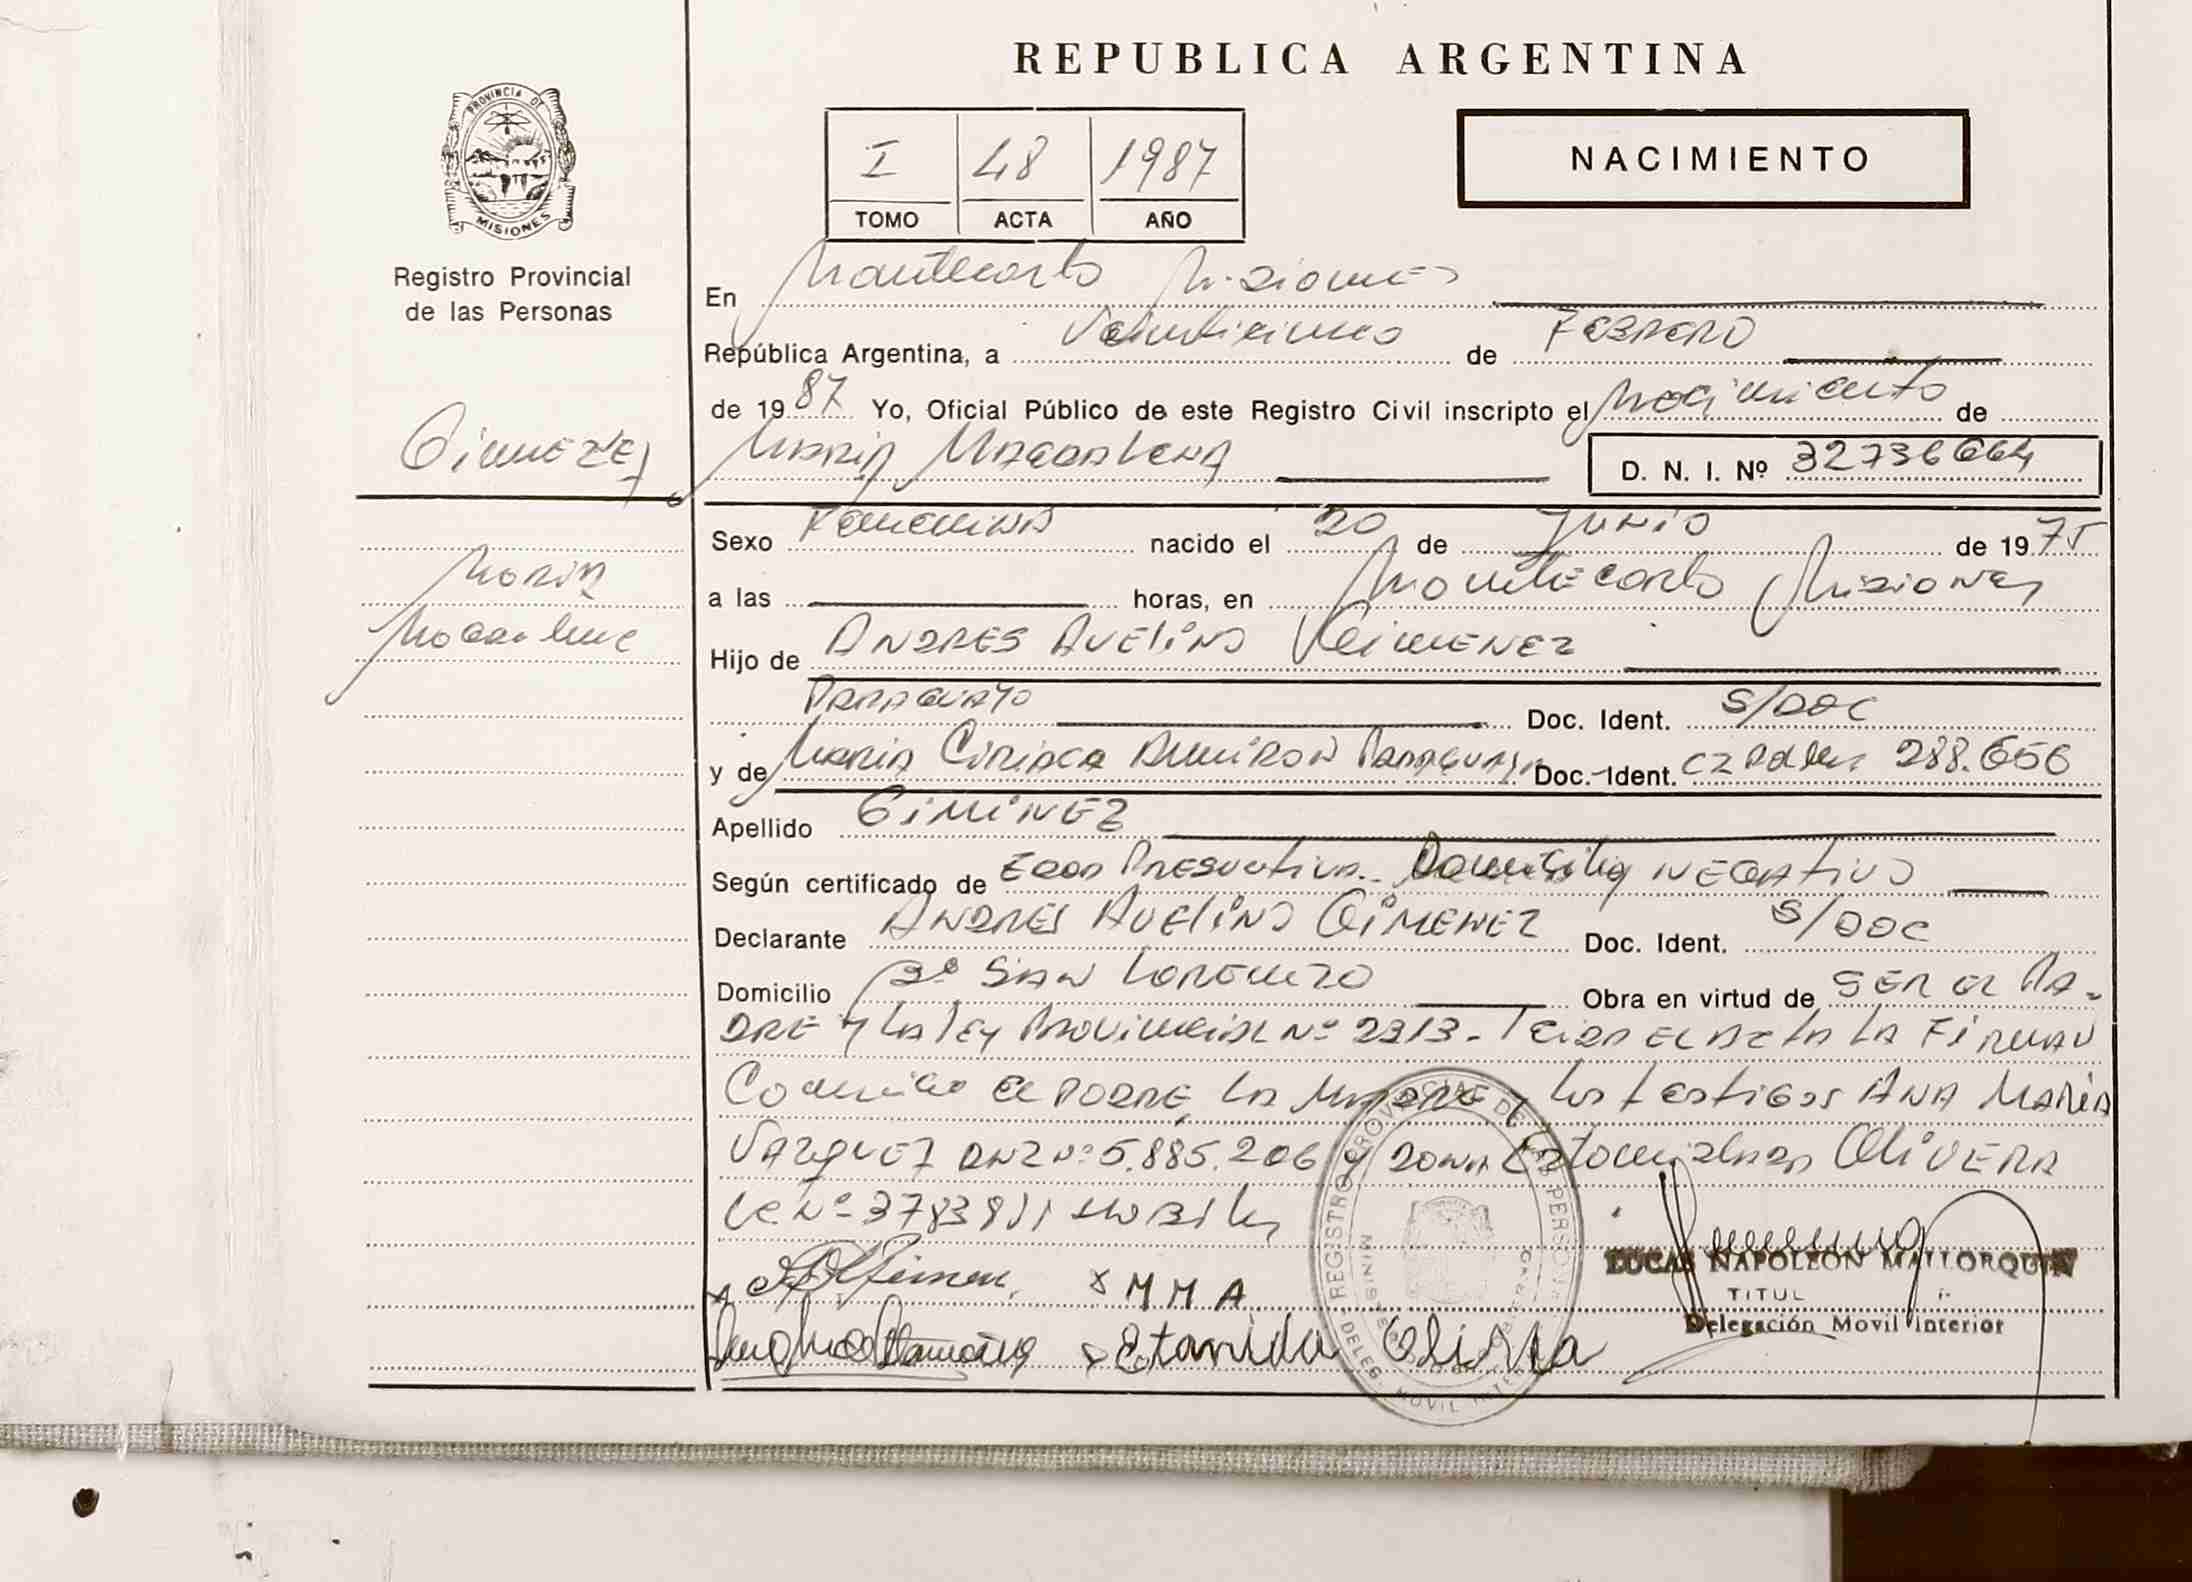 REPUBLICA ARGENTINA
PROVINCIA DE
MISIONES
Registro Provincial
de las Personas
I 48 1987
TOMO ACTA AÑO
NACIMIENTO
En Montecarlo Misiones
República Argentina, a Veinticinco de FEBRERO
de 1987 Yo, Oficial Público de este Registro Civil inscripto el Nacimiento de
GimENEZ
MARIA MAGDALENA D. N. I. Nº 32736664
Sexo Femenina nacido el 20 de JUNIO de 1975
Maria
a las horas, en MontECarlo Misiones
Magdalena
Hijo de ANDRES AVELINO GIMENEZ
PARAGUAYO Doc. Ident. S/DOC
y de MARIA CIRIACA Paraguaya Doc. Ident. CI 288.656
Apellido GIMINEZ
Según certificado de EDAD PRESUNTIVA. Domicilio NEGATIVO
Declarante ANDRES AVELINO GIMENEZ Doc. Ident. S/DOC
Domicilio Bº SAN LORENZO Obra en virtud de SER EL PA-
DRE Y LA LEY PROVINCIAL Nº 2313. LEIDA EL ACTA LA FIRMAN
Conmigo EL PADRE, LA MADRE y los testigos ANA MARIA
VAZQUEZ DNI Nº 5.885.206 y DONA OLIVERA
LC Nº
x x M M A
x Etanida
LUCAS NAPOLEON MALLORQUIN
TITULAR
Delegación Movil Interior
REGISTRO PROVINCIAL DE LAS PERSONAS
MINISTERIO DE GOBIERNO
DELEG. MOVIL INTERIOR